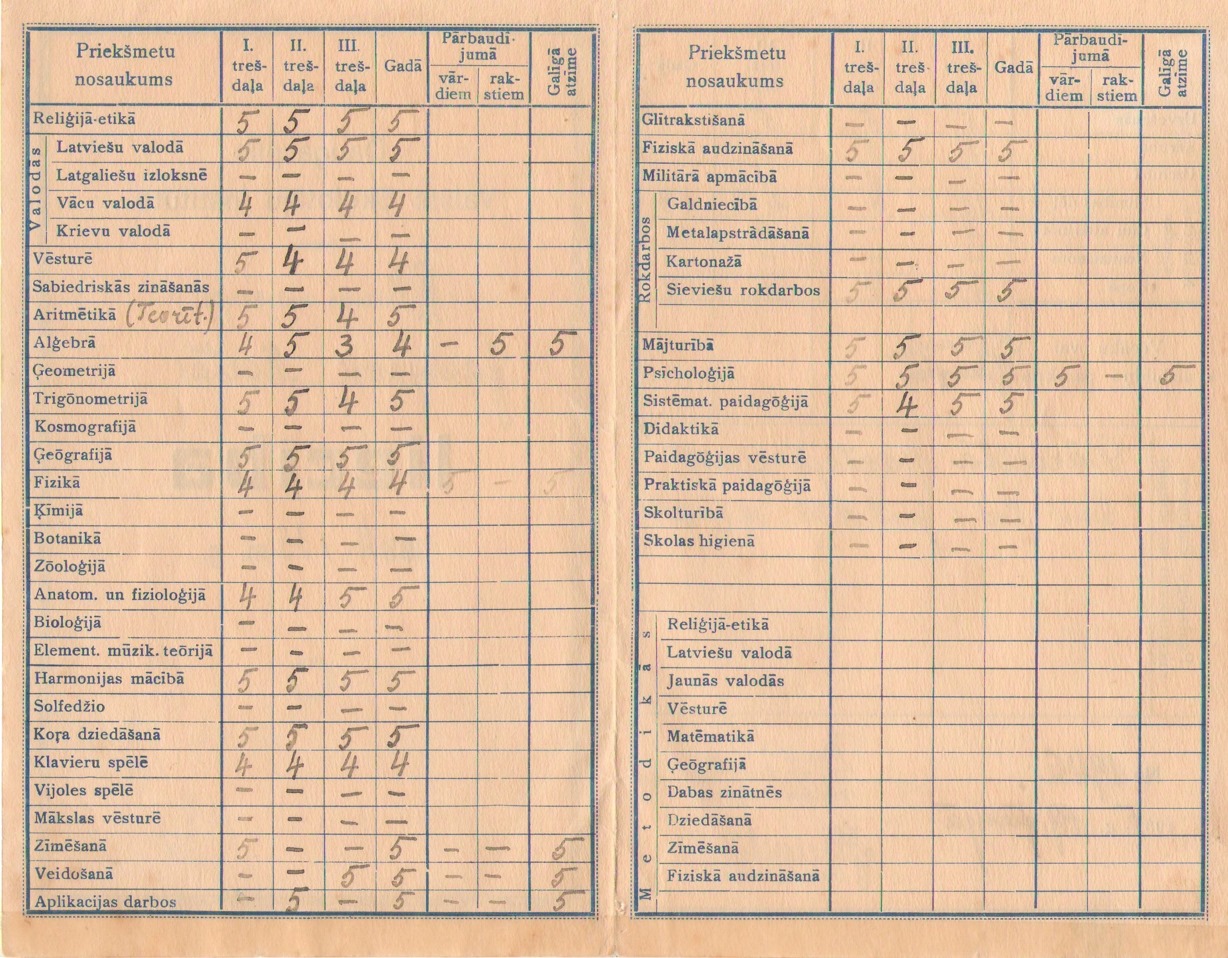 Priekšmetu nosaukums I. treš-daļa II. treš-daļa III. treš-daļa Gadā Pārbaudī-jumā vār-diem rak-stiem Galīgā atzīme
Reliģijā-etikā 5 5 5 5
Valodās
Latviešu valodā 5 5 5 5
Latgaliešu izloksnē – – – –
Vācu valodā 4 4 4 4
Krievu valodā – – – –
Vēsturē 5 4 4 4
Sabiedriskās zināšanās – – – –
Aritmētikā (Teorēt.) 5 5 4 5
Alģebrā 4 5 3 4 – 5 5
Ģeometrijā – – – –
Trigōnometrijā 5 5 4 5
Kosmografijā – – – –
Ģeōgrafijā 5 5 5 5
Fizikā 4 4 4 4 5 – 5
Ķīmijā – – – –
Botanikā – – – –
Zōoloģijā – – – –
Anatom. un fizioloģijā 4 4 5 5
Bioloģijā – – – –
Element. mūzik. teōrijā – – – –
Harmonijas mācībā 5 5 5 5
Solfedžio – – – –
Koŗa dziedāšanā 5 5 5 5
Klavieru spēlē 4 4 4 4
Vijoles spēlē – – – –
Mākslas vēsturē – – – –
Zīmēšanā 5 – – 5 – – 5
Veidošanā – – 5 5 – – 5
Aplikacijas darbos – 5 – 5 – – 5
Priekšmetu nosaukums I. treš-daļa II. treš-daļa III. treš-daļa Gadā Pārbaudī-jumā vār-diem rak-stiem Galīgā atzīme
Glītrakstīšanā – – – –
Fiziskā audzināšanā 5 5 5 5
Militārā apmācībā – – – –
Rokdarbos
Galdniecībā – – – –
Metalapstrādāšanā – – – –
Kartonažā – – – –
Sieviešu rokdarbos 5 5 5 5
Mājturībā 5 5 5 5
Psīcholoģijā 5 5 5 5 5 – 5
Sistēmat. paidagōģijā 5 4 5 5
Didaktikā – – – –
Paidagōģijas vēsturē – – – –
Praktiskā paidagōģijā – – – –
Skolturībā – – – –
Skolas higienā – – – –
Metodikās
Reliģijā-etikā
Latviešu valodā
Jaunās valodās
Vēsturē
Matēmatikā
Ģeōgrafijā
Dabas zinātnēs
Dziedāšanā
Zīmēšanā
Fiziskā audzināšanā